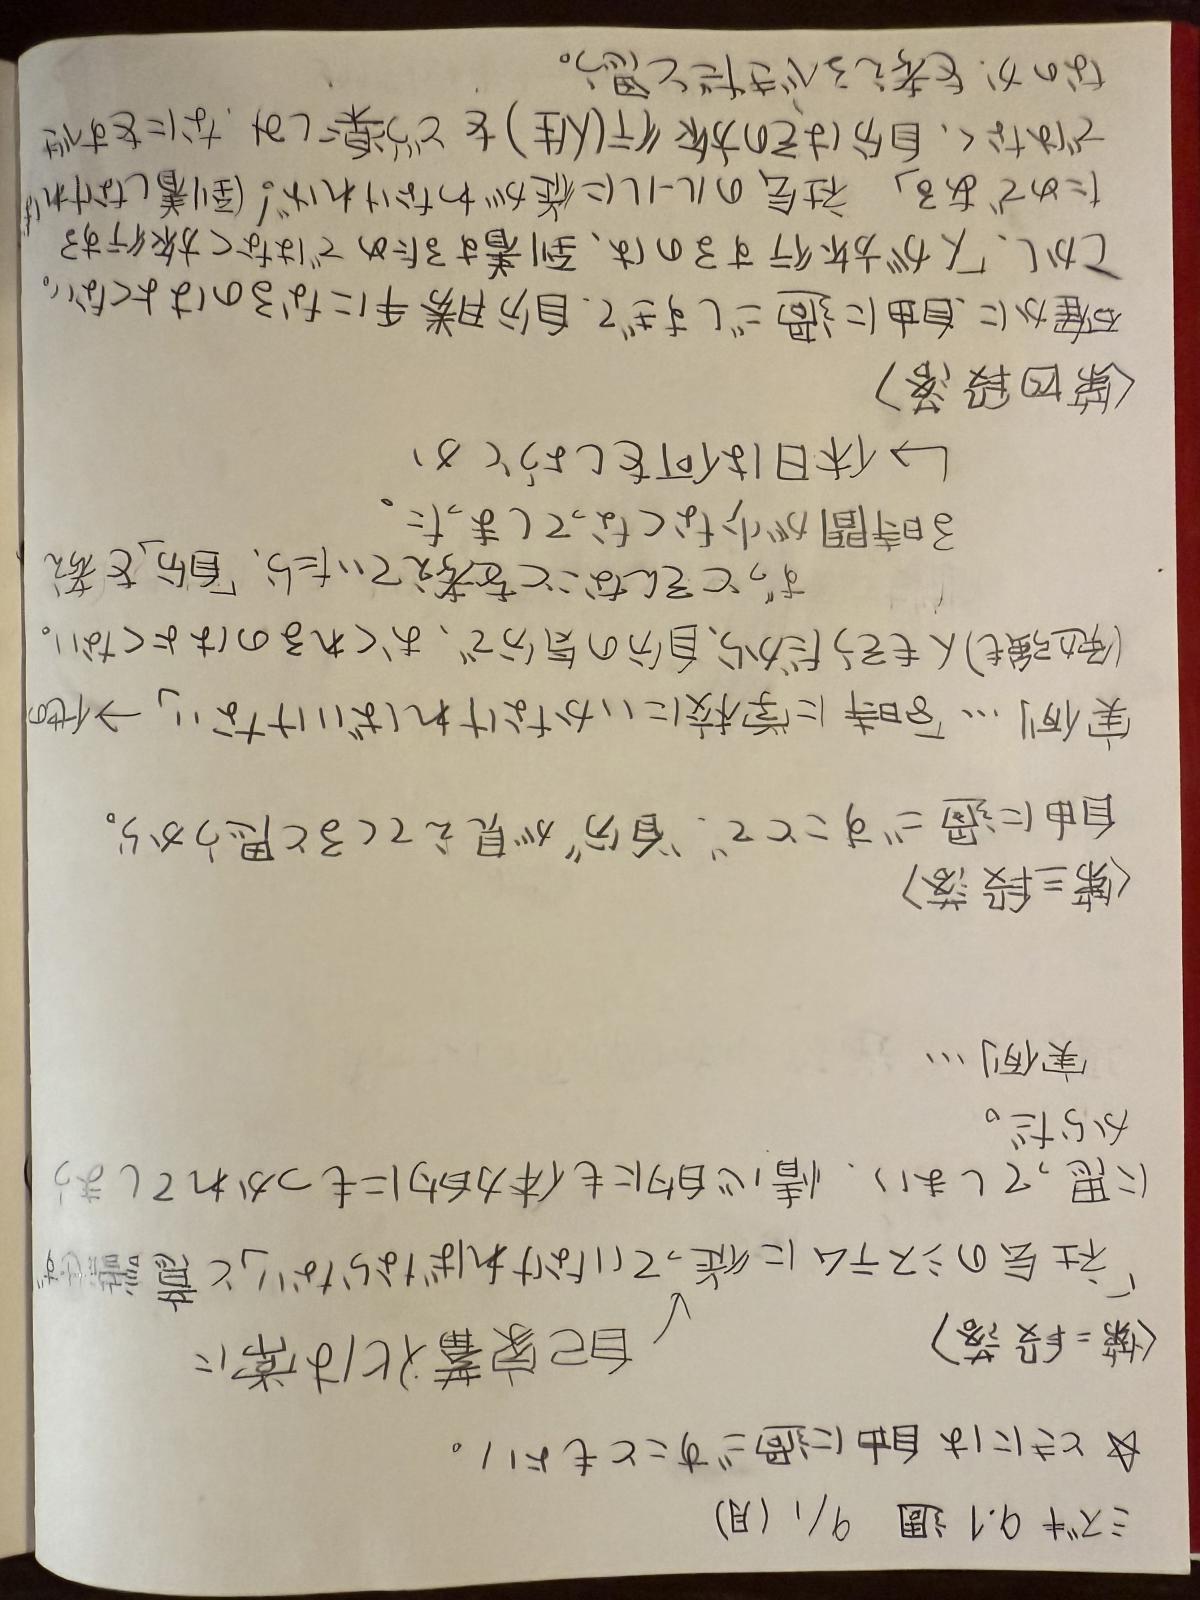 ミズキ 9.1週 9/1 (月)
☆ ときには自由に過ごすこともよい。
自己家畜化は常に
〈第二段落〉
「社会のシステムに従っていなければならない」と意識せず
に思ってしまい、精神的にも体力的にもつかれてしまう
からだ。
実例…
〈第三段落〉
自由に過ごすことで、"自分"が見えてくると思うから。
実例…「8時に学校にいかなければいけない」→他の
(勉強も)人もそうだから、自分の気分で、おくれるのはよくない。
ずっとそんなことを考えていたら、「自分」を考え
る時間が少なくなってしまった。
↳休日は何をしようとか
〈第四段落〉
確かに、自由に過ごしすぎて、自分勝手になるのはよくない。
しかし、「人が旅行するのは、到着するためではなく旅行する
ためである」社会のルールに従がわなければ!(到着しなければ
ではなく、自分はその旅行(人生)をどう楽しみ、なにをすべき
なのか、を考えるべきだと思う。